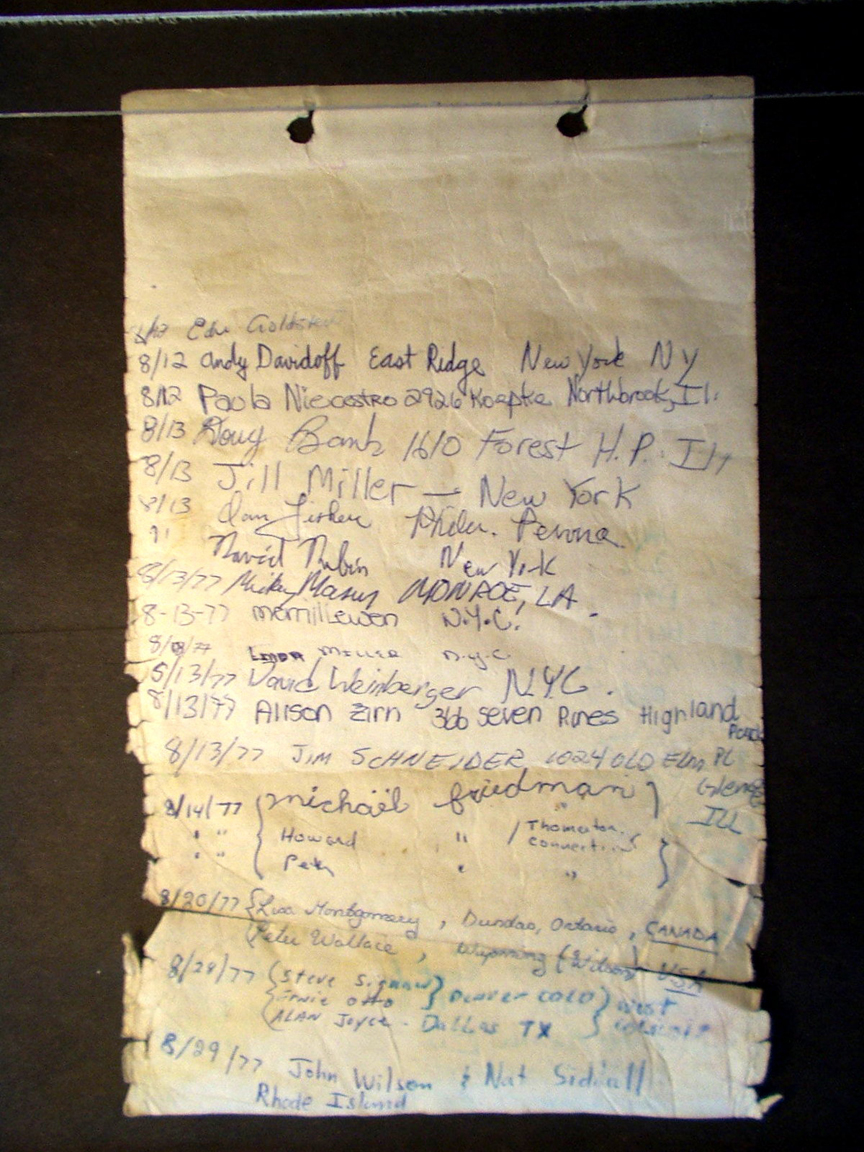 8/12 Edie
8/12 Andy Davidoff East Ridge New York NY
8/12 Paula Nicastro 2926 Koepke Northbrook, Il.
8/13 Doug Bank 1610 Forest H.P. Ill
8/13 Jill Miller — New York
8/13 Dan Fisher Phila. Penna.
" David Rubin New York
8/13/77 Micky MONROE, LA.
8-13-77 merrill ewen N.Y.C.
Linda MILLER n.y.c
8/13/77 David Weinberger NYC.
8/13/77 Alison Zirn 366 Seven Pines Highland
Park
8/13/77 JIM SCHNEIDER 1024 OLD Elm PL
ILL
8/14/77 { michael friedman }
" " { Howard " / Thomaston,
" " { Peter " " } Connecticut
8/20/77 { Lisa Montgomery, Dundas, Ontario, CANADA
Peter Wallace, Wyoming (Wilson) USA
8/29/77 { Steve
{ Ernie otto } DENVER COLO } West
{ ALAN Joyce - Dallas TX }
8/29/77 John Wilson & Nat
Rhode Island